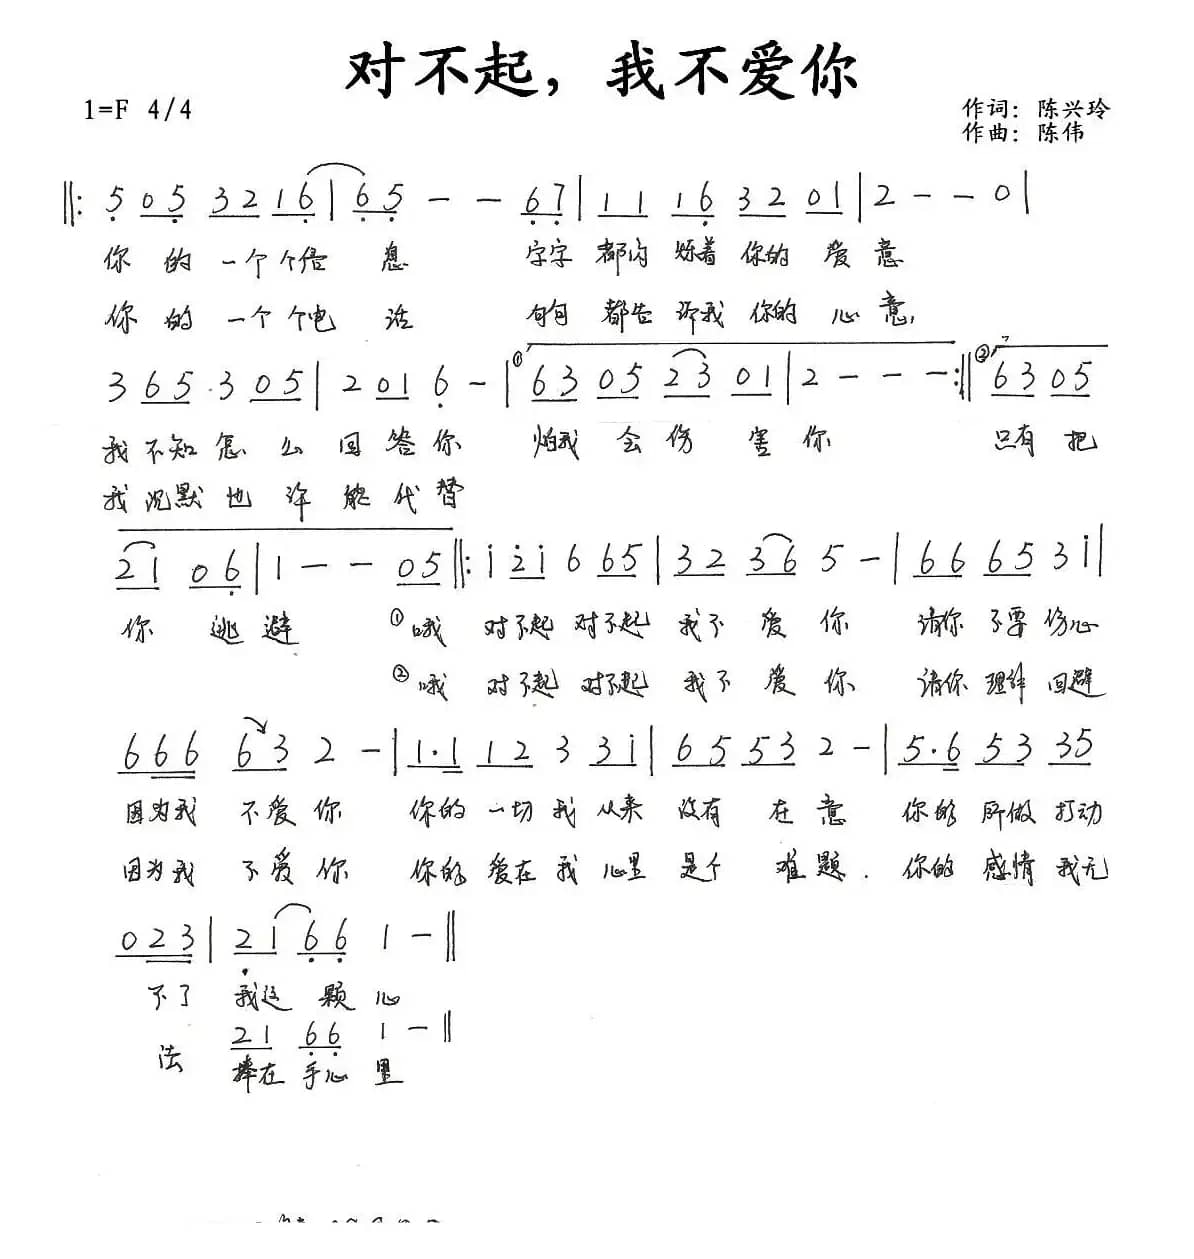 对不起，我不爱你
1=F 4/4
作词：陈兴玲
作曲：陈伟
‖: 5̣ 0 5̣ 3 2 1 6̣ | 6̣ 5̣ - - 6̣ 7̣ | 1 1 1 6̣ 3 2 0 1 | 2 - - 0 |
你的一个个信息 字字都闪烁着你的爱意
你的一个个电话 句句都告诉我你的心意,
3 6 5 · 3 0 5 | 2 0 1 6̣ - | ① 6 3 0 5 2 3 0 1 | 2 - - - :‖ ② 6 3 0 5
我不知怎么回答你 怕我会伤害你 只有把
我沉默也许能代替
2 1 0 6̣ | 1 - - 0 5 ‖: i 2̇ i 6 6 5 | 3 2 3 6 5 - | 6 6 6 5 3 i |
你逃避 ①哦 对不起对不起我不爱你 请你不要伤心
②哦 对不起对不起我不爱你 请你理解回避
6 6 6 6 3 2 - | 1 · 1 1 2 3 3 i | 6 5 5 3 2 - | 5 · 6 5 3 3 5
因为我不爱你 你的一切我从来没有在意 你的所做打动
因为我不爱你 你的爱在我心里是个难题. 你的感情我无
0 2 3 | 2 1 6̣ 6̣ 1 - ‖
不了 我这颗心
2 1 6̣ 6̣ 1 - ‖
法 捧在手心里